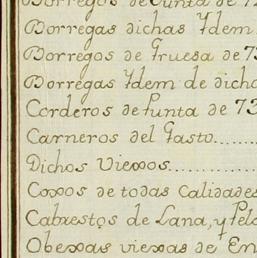 Borregos de Punta de 7
Borregas dichas Ydem
Borregos de Gruesa de 73
Borregas Ydem de dicho
Corderos de Punta de 73
Carneros del Gasto......
Dichos Viexos..........
Coxos de todas Calidades
Cabrestos de Lana, y Pelo
Obexas viexas de En